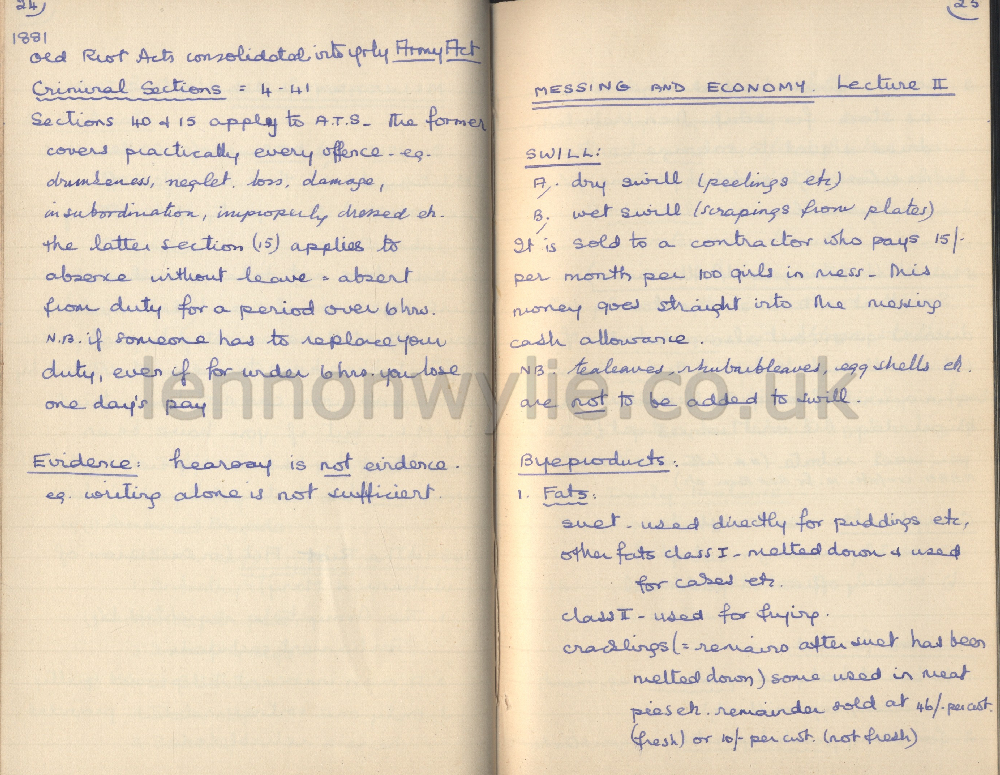 24
1881
Old Riot Acts consolidated into yrly Army Act
Criminal Sections = 4 - 41
Sections 40 & 15 apply to A.T.S. - The former
covers practically every offence - eg.
drunkeness, neglet, loss, damage,
insubordination, improperly dressed etc.
the latter section (15) applies to
absence without leave = absent
from duty for a period over 6 hrs.
N.B. if someone has to replace your
duty, even if for under 6 hrs. you lose
one day's pay
Evidence: hearsay is not eirdence.
eg. writing alone is not sufficient.
25
MESSING AND ECONOMY. Lecture II
SWILL:
A. dry swill (peelings etc)
B. wet swill (scrapings from plates)
It is sold to a contractor who pays 15/-
per month per 100 girls in mess - This
money goes straight into the messing
cash allowance.
NB. tealeaves, rhubarbleaves, egg shells etc.
are not to be added to swill.
Byeproducts:
1. Fats:
suet - used directly for puddings etc,
other fats class I - melted down & used
for cakes etc.
class II - used for frying.
cracklings (= remains after suet has been
melted down) some used in meat
pies etc. remainder sold at 46/- per cwt.
(fresh) or 10/- per cwt. (not fresh)
lennonwylie.co.uk